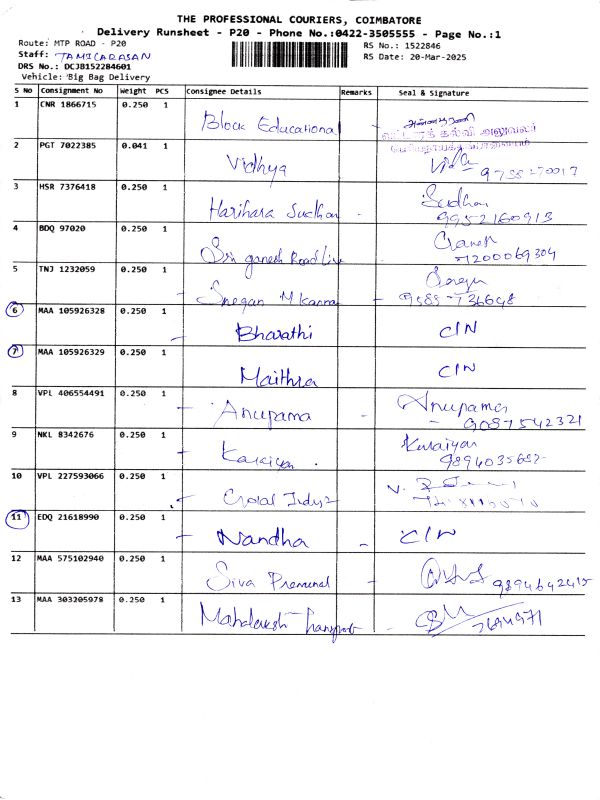 THE PROFESSIONAL COURIERS, COIMBATORE
Delivery Runsheet - P20 - Phone No.:0422-3505555 - Page No.:1
Route: MTP ROAD - P20 RS No.: 1522846
Staff: TAMILARASAN RS Date: 20-Mar-2025
DRS No.: DCJB152284601
Vehicle: Big Bag Delivery
S No Consignment No Weight PCS Consignee Details Remarks Seal & Signature
1 CNR 1866715 0.250 1 Block Educational
வட்டாரக் கல்வி அலுவலர்
2 PGT 7022385 0.041 1 Vidhya
3 HSR 7376418 0.250 1 Harihara Sudhan - Sudhan
9952160913
4 BDQ 97020 0.250 1 Sri ganesh Road Line - Ganesh
7200069304
5 TNJ 1232059 0.250 1 Snegan M Kanna -
6 MAA 105926328 0.250 1 Bharathi C/N
7 MAA 105926329 0.250 1 Maithra C/N
8 VPL 406554491 0.250 1 Anupama - Anupama
9087542321
9 NKL 8342676 0.250 1
10 VPL 227593066 0.250 1
11 EDQ 21618990 0.250 1 Nandha - C/N
12 MAA 575102940 0.250 1 Siva Premnal - 9894642415
13 MAA 303205978 0.250 1 Mahalaksh Transport -